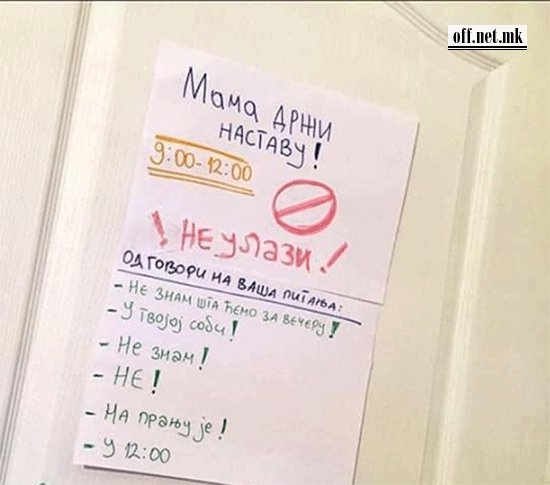 off.net.mk
Мама држи
наставу!
9:00-12:00
! Не улази!
Одговори на ваша питања:
- Не знам шта ћемо за вечеру!
- У твојој соби!
- Не знам!
- НЕ!
- На прању је!
- У 12:00